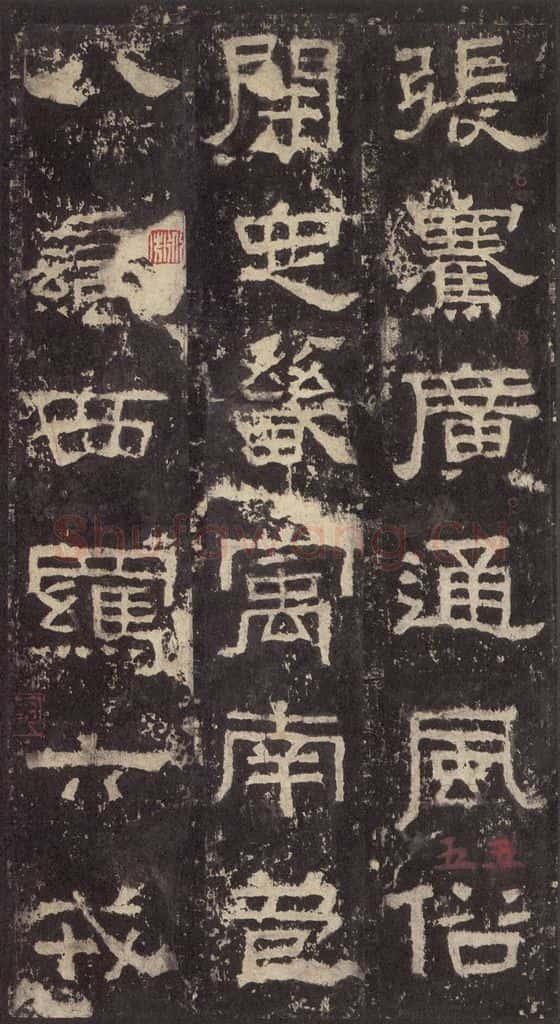 張騫廣通風俗
開定畿寓南苞
八蠻西羈六戎
Shufawang.CN
五五